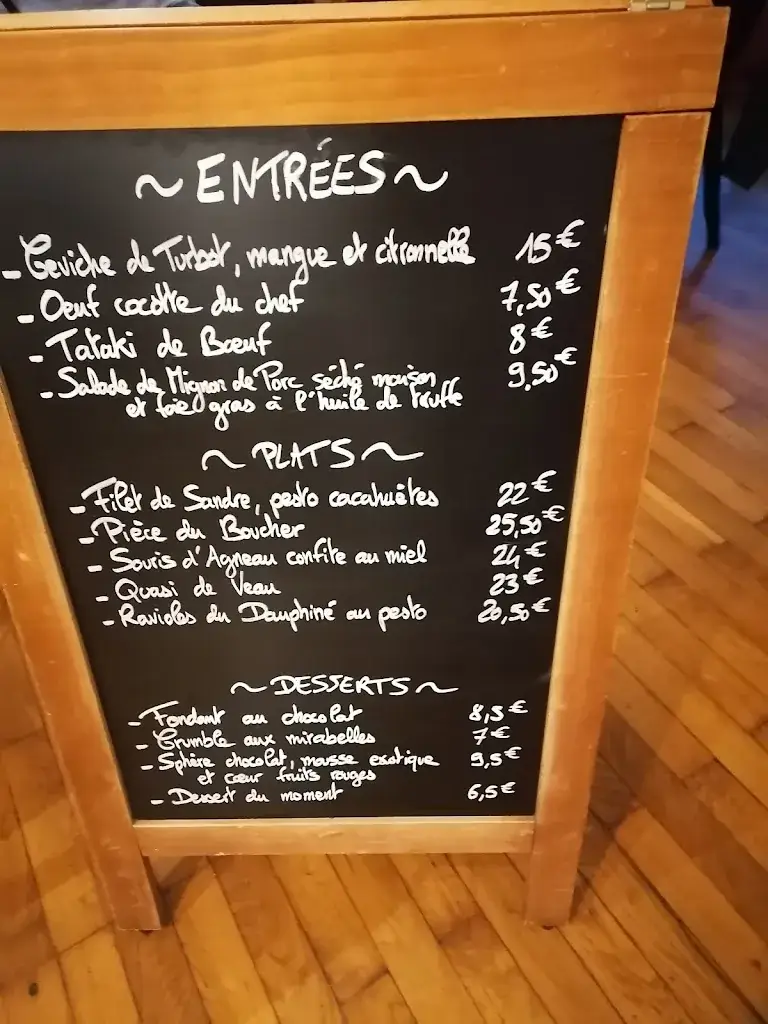 ~ ENTRÉES ~
- Ceviche de Turbot, mangue et citronnelle 15€
- Oeuf cocotte du chef 7,50€
- Tataki de Bœuf 8€
- Salade de Mignon de Porc séché maison 9,50€
et foie gras à l'huile de truffe
~ PLATS ~
- Filet de Sandre, pesto cacahuètes 22€
- Pièce du Boucher 25,50€
- Souris d'Agneau confite au miel 24€
- Quasi de Veau 23€
- Ravioles du Dauphiné au pesto 20,50€
~ DESSERTS ~
- Fondant au chocolat 8,5€
- Crumble aux mirabelles 7€
- Sphère chocolat, mousse exotique 9,5€
et cœur fruits rouges
- Dessert du moment 6,5€